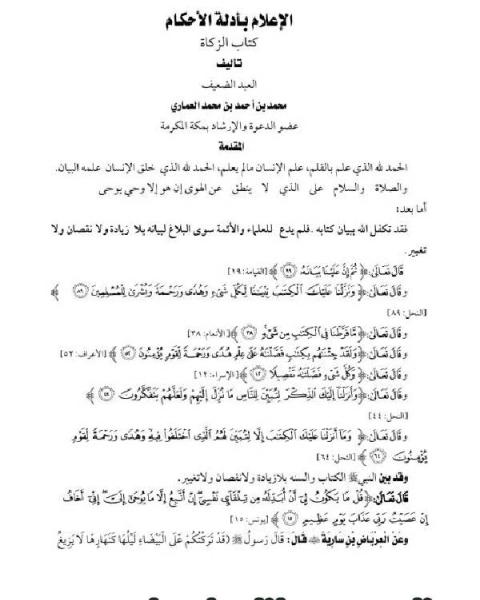 الإعلام بأدلة الأحكام
كتاب الزكاة
تأليف
العبد الضعيف
محمد بن أحمد بن محمد العماري
عضو الدعوة والإرشاد بمكة المكرمة
المقدمة
الحمد لله الذي علم بالقلم، علم الإنسان مالم يعلم، الحمد لله الذي خلق الإنسان علمه البيان.
والصلاة والسلام على الذي لا ينطق عن الهوى إن هو إلا وحي يوحى
أما بعد:
فقد تكفل الله ببيان كتابه .فلم يدع للعلماء والأئمة سوى البلاغ لبيانه بلا زيادة ولا نقصان ولا
تغيير.
قَالَ تَعَالَى:﴿ ثُمَّ إِنَّ عَلَيْنَا بَيَانَهُ ۝١٩ ﴾[القيامة:١٩]
و قَالَ تَعَالَى:﴿ وَنَزَّلْنَا عَلَيْكَ الْكِتَابَ تِبْيَانًا لِّكُلِّ شَيْءٍ وَهُدًى وَرَحْمَةً وَبُشْرَىٰ لِلْمُسْلِمِينَ ۝٨٩ ﴾
[النحل:٨٩]
و قَالَ تَعَالَى:﴿ مَّا فَرَّطْنَا فِي الْكِتَابِ مِن شَيْءٍ ۝٣٨ ﴾ [الأنعام: ٣٨]
و قَالَ تَعَالَى:﴿ وَلَقَدْ جِئْنَاهُم بِكِتَابٍ فَصَّلْنَاهُ عَلَىٰ عِلْمٍ هُدًى وَرَحْمَةً لِّقَوْمٍ يُؤْمِنُونَ ۝٥٢ ﴾ [الأعراف: ٥٢]
و قَالَ تَعَالَى:﴿ وَكُلَّ شَيْءٍ فَصَّلْنَاهُ تَفْصِيلًا ۝١٢ ﴾ [الإسراء:١٢]
و قَالَ تَعَالَى:﴿ وَأَنزَلْنَا إِلَيْكَ الذِّكْرَ لِتُبَيِّنَ لِلنَّاسِ مَا نُزِّلَ إِلَيْهِمْ وَلَعَلَّهُمْ يَتَفَكَّرُونَ ۝٤٤ ﴾
[النحل: ٤٤]
و قَالَ تَعَالَى:﴿ وَمَا أَنزَلْنَا عَلَيْكَ الْكِتَابَ إِلَّا لِتُبَيِّنَ لَهُمُ الَّذِي اخْتَلَفُوا فِيهِ وَهُدًى وَرَحْمَةً لِّقَوْمٍ
يُؤْمِنُونَ ۝٦٤ ﴾ [النحل: ٦٤]
وقد بين النبي ﷺ الكتاب والسنه بلازيادة ولانقصان ولاتغيير.
قَالَ تَعَالَى:﴿ قُلْ مَا يَكُونُ لِي أَنْ أُبَدِّلَهُ مِن تِلْقَاءِ نَفْسِي إِنْ أَتَّبِعُ إِلَّا مَا يُوحَىٰ إِلَيَّ إِنِّي أَخَافُ
إِنْ عَصَيْتُ رَبِّي عَذَابَ يَوْمٍ عَظِيمٍ ۝١٥ ﴾ [يونس: ١٥]
وعَنِ العِرْبَاضِ بْنِ سَارِيَةَ ﷺ قَالَ: قَالَ رَسولُ ﷺ (قَدْ تَرَكْتُكُمْ عَلَى الْبَيْضَاءِ لَيْلُهَا كَنَهَارِهَا لَا يَزِيغُ